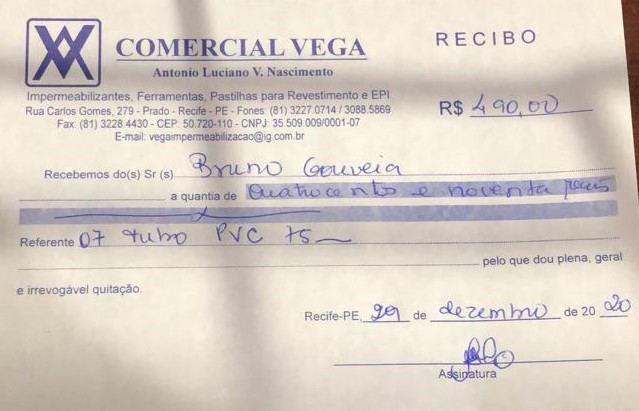 COMERCIAL VEGA
RECIBO
Antonio Luciano V. Nascimento
Impermeabilizantes, Ferramentas, Pastilhas para Revestimento e EPI
Rua Carlos Gomes, 279 - Prado - Recife - PE - Fones: (81) 3227.0714 / 3088.5869
R$ 490,00
Fax: (81) 3228.4430 - CEP: 50.720-110 - CNPJ: 35.509.009/0001-07
E-mail: vegaimpermeabilizacao@ig.com.br
Recebemos do(s) Sr (s) Bruno Gouveia
a quantia de quatrocentos e noventa reais
Referente 07 tubo PVC 75
pelo que dou plena, geral
e irrevogável quitação.
Recife-PE, 29 de dezembro de 20 20
Assinatura